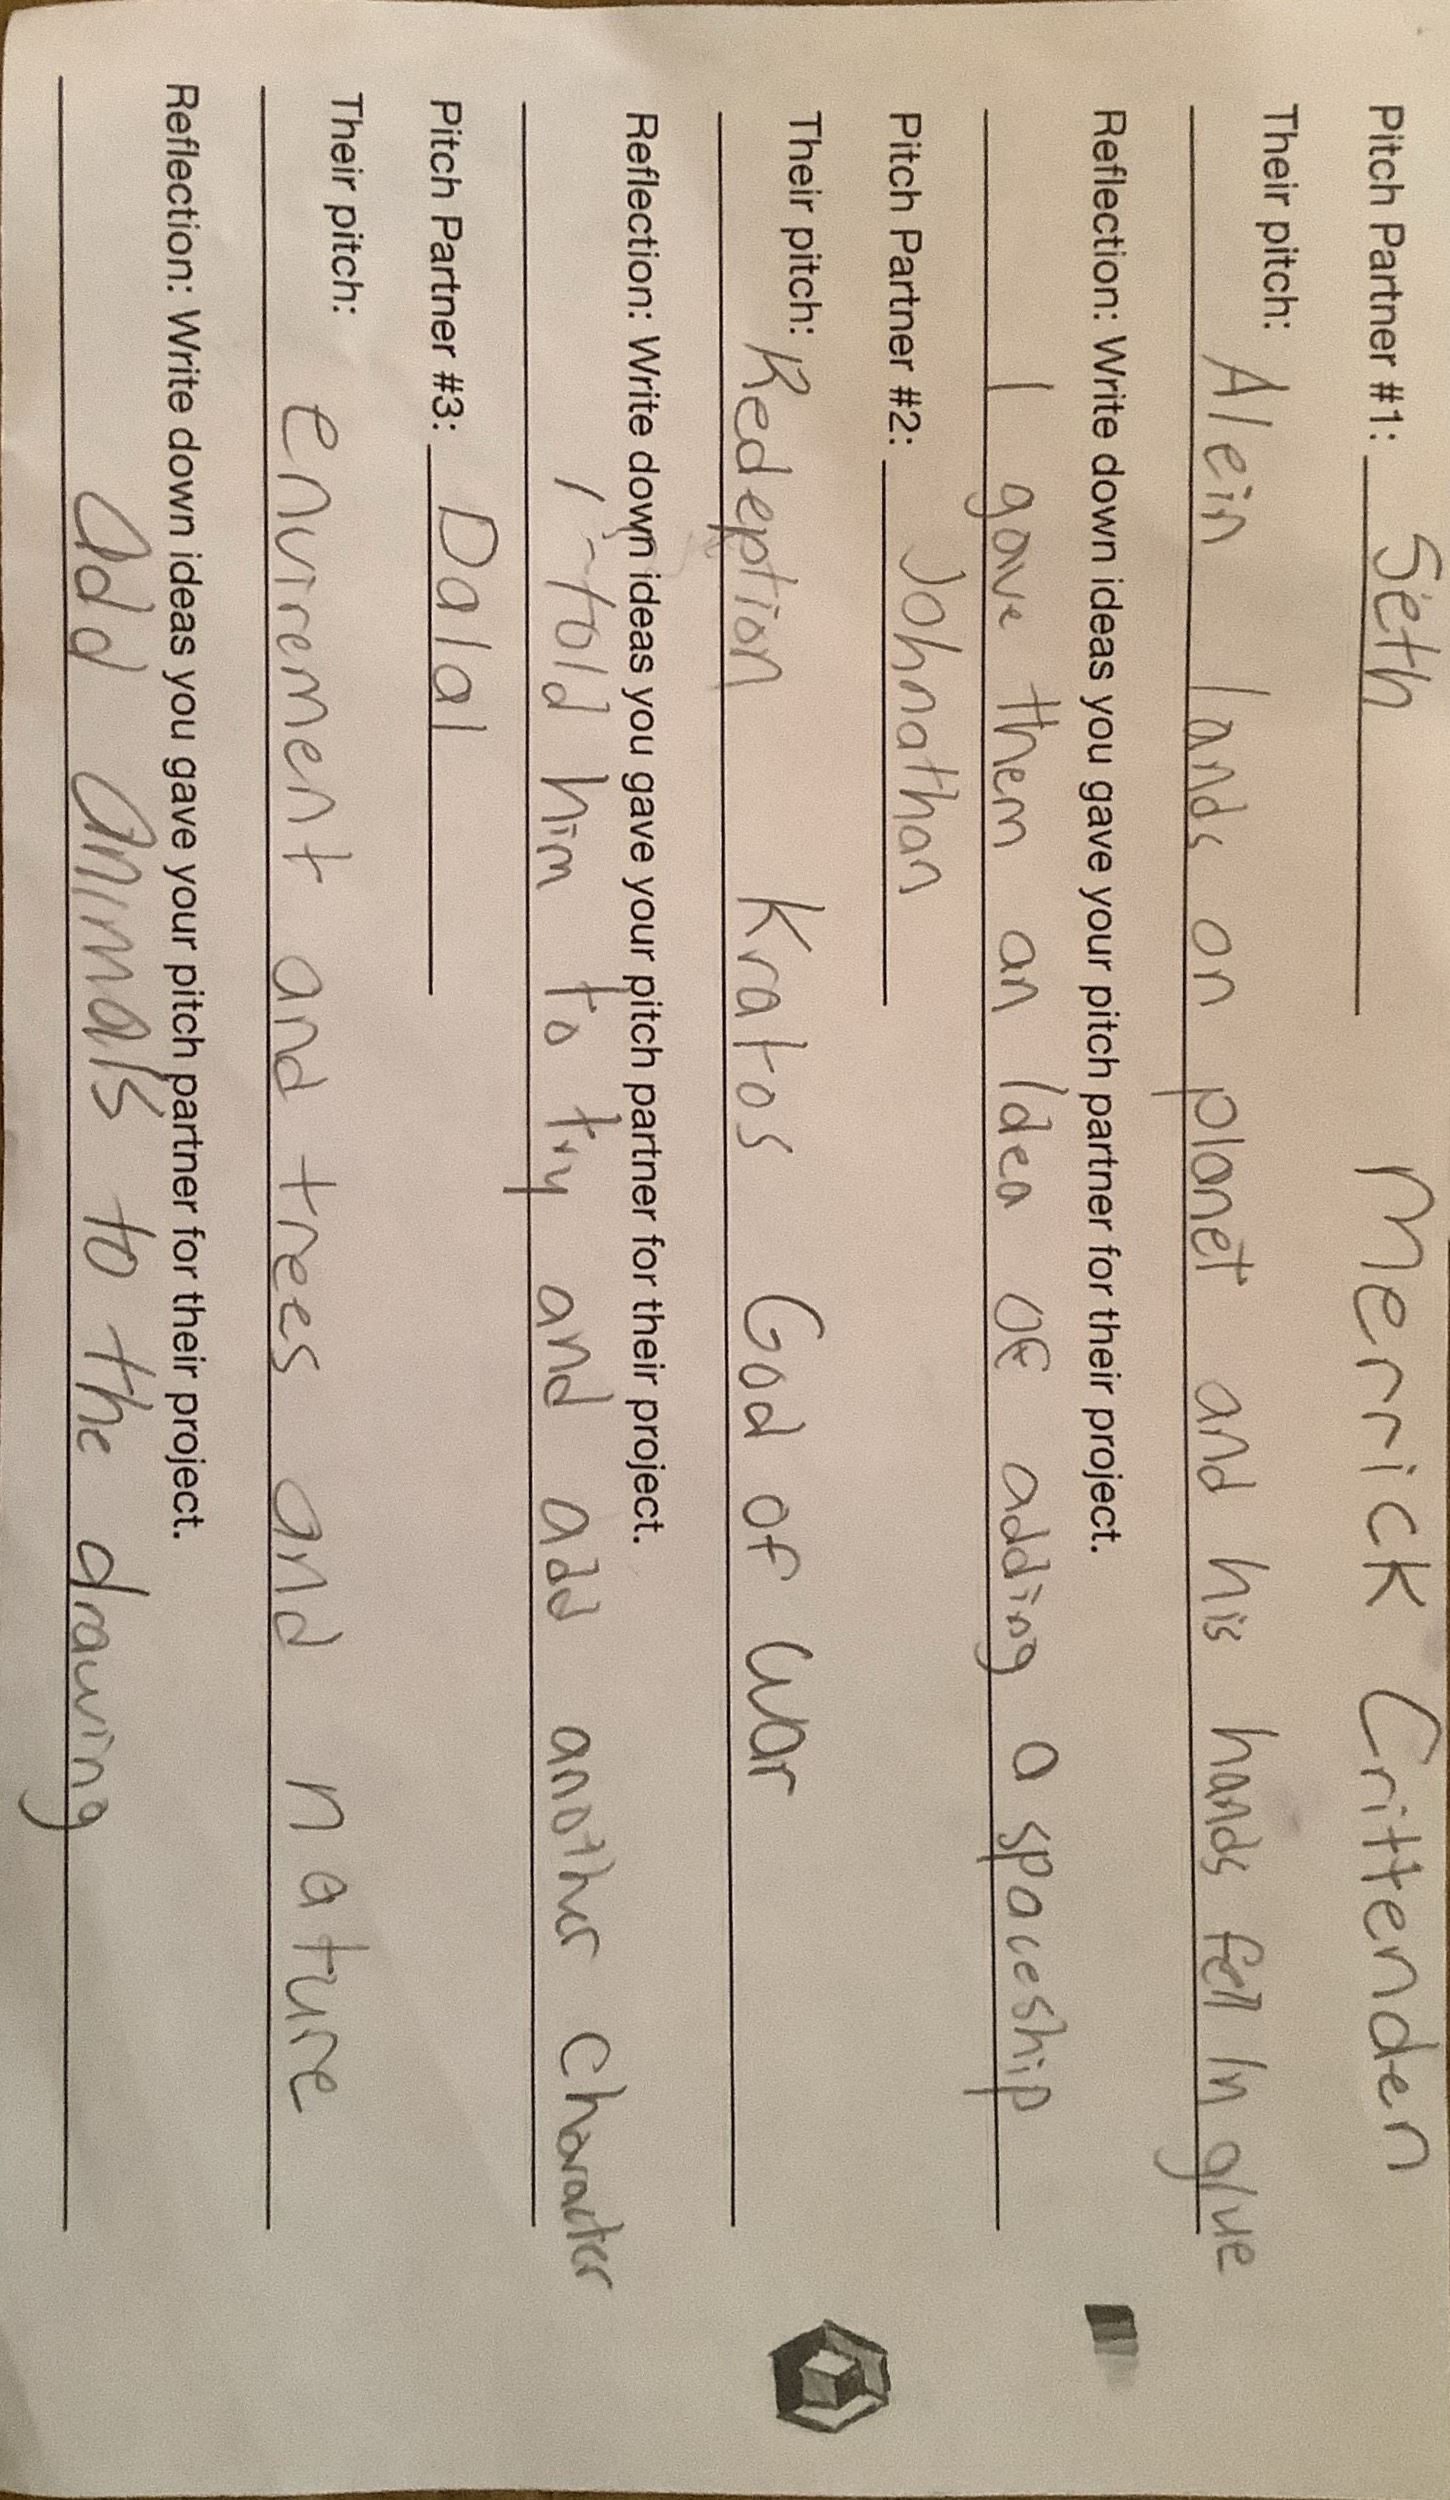 Pitch Partner #1: Seth Merrick Crittenden
Their pitch: Alein lands on planet and his hands fell in glue
Reflection: Write down ideas you gave your pitch partner for their project.
I gave them an Idea of adding a spaceship
Pitch Partner #2: Johnathan
Their pitch: Redeption Kratos God of war
Reflection: Write down ideas you gave your pitch partner for their project.
I told him to try and add another character
Pitch Partner #3: Dalal
Their pitch: envirement and trees and nature
Reflection: Write down ideas you gave your pitch partner for their project.
add animals to the drawing